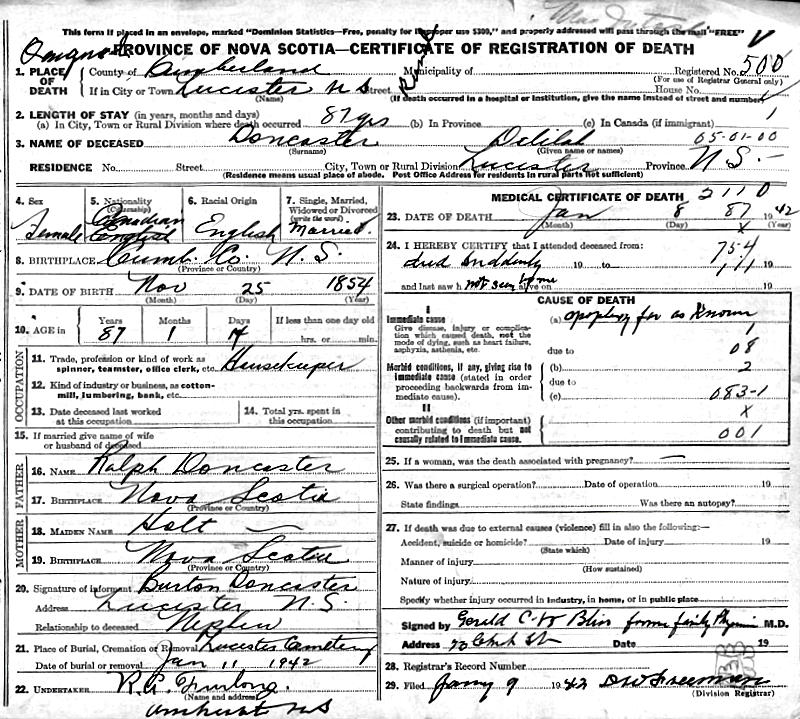 This form if placed in an envelope, marked "Dominion Statistics—Free, penalty for improper use $300," and properly addressed will pass through the mail "FREE"
PROVINCE OF NOVA SCOTIA—CERTIFICATE OF REGISTRATION OF DEATH
1. PLACE OF DEATH
County of Cumberland Municipality of Registered No. 500
(For use of Registrar General only)
If in City or Town Leicester N S Street House No.
(Name) (If death occurred in a hospital or institution, give the name instead of street and number)
2. LENGTH OF STAY (in years, months and days)
(a) In City, Town or Rural Division where death occurred 87 yrs (b) In Province (c) In Canada (if immigrant)
3. NAME OF DECEASED Doncaster Delilah 05-01-00
(Surname) (Given name or names)
RESIDENCE No. Street City, Town or Rural Division Leicester Province N.S.
(Residence means usual place of abode. Post Office Address for residents in rural parts not sufficient)
4. Sex Female
5. Nationality (Citizenship) Canadian English
6. Racial Origin English
7. Single, Married, Widowed or Divorced (write the word) Married.
8. BIRTHPLACE Cumb. Co. N.S.
(Province or Country)
9. DATE OF BIRTH Nov 25 1854
(Month) (Day) (Year)
10. AGE in Years Months Days If less than one day old
87 1 14 hrs. or min.
OCCUPATION
11. Trade, profession or kind of work as spinner, teamster, office clerk, etc. Housekeeper
12. Kind of industry or business, as cotton-mill, lumbering, bank, etc.
13. Date deceased last worked at this occupation
14. Total yrs. spent in this occupation
15. If married give name of wife or husband of deceased
FATHER
16. NAME Ralph Doncaster
17. BIRTHPLACE Nova Scotia
(Province or Country)
MOTHER
18. MAIDEN NAME Holt
19. BIRTHPLACE Nova Scotia
(Province or Country)
20. Signature of informant Burton Doncaster
Address Leicester N.S.
Relationship to deceased Nephew
21. Place of Burial, Cremation or Removal Leicester Cemetery
Date of burial or removal Jan 11 1942
22. UNDERTAKER R.A. Furlong.
(Name and address)
Amherst NS
MEDICAL CERTIFICATE OF DEATH 2110
23. DATE OF DEATH Jan 8 87 1942
(Month) (Day) (Year)
x
24. I HEREBY CERTIFY that I attended deceased from: 754
died suddenly 19 to 19
and last saw h alive on 19
not seen by me
CAUSE OF DEATH
I
Immediate cause
Give disease, injury or complication which caused death, not the mode of dying, such as heart failure, asphyxia, asthenia, etc.
(a) apoplexy far as Known
1
due to 08
Morbid conditions, if any, giving rise to immediate cause (stated in order proceeding backwards from immediate cause).
(b) 2
due to
(c) 083-1
II
x
Other morbid conditions (if important) contributing to death but not causally related to immediate cause.
001
25. If a woman, was the death associated with pregnancy? —
26. Was there a surgical operation? Date of operation 19
State findings Was there an autopsy?
27. If death was due to external causes (violence) fill in also the following:—
Accident, suicide or homicide? Date of injury 19
(State which)
Manner of injury
(How sustained)
Nature of injury
Specify whether injury occurred in industry, in home, or in public place
Signed by Gerald C. W. Bliss former family Physician M.D.
Address Date 19
28. Registrar's Record Number
29. Filed Jany 9 1942 DW Freeman
(Division Registrar)